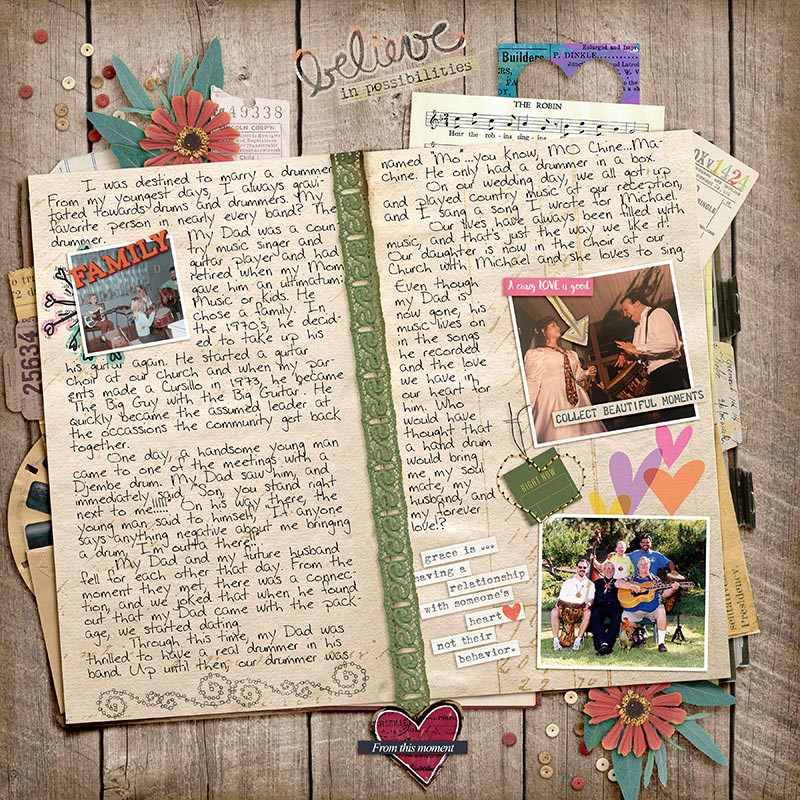 believe
in possibilities
Enlarged and Impr
Builders P. DINKLE
49338
COLN CORP'N
Child
THE ROBIN
Hear the rob - ins sing - ing
1424
25634
I was destined to marry a drummer
From my youngest days, I always gravi-
tated towards drums and drummers. My
favorite person in nearly every band? The
drummer.
My Dad was a coun
try music singer and
guitar player and had
retired when my Mom
gave him an ultimatum:
Music or kids. He
chose a family. In
the 1970's, he decid-
ed to take up his
his guitar again. He started a guitar
choir at our church and when my par-
ents made a Cursillo in 1973, he became
"The Big Guy with the Big Guitar". He
quickly became the assumed leader at
the occassions the community got back
together.
One day, a handsome young man
came to one of the meetings with a
Djembe drum. My Dad saw him, and
immediately said, "Son, you stand right
next to me!!!!!" On his way there, the
young man said to himself "If anyone
says anything negative about me bringing
a drum, I'm outta there!"
My Dad and my future husband
fell for each other that day. From the
moment they met, there was a connec-
tion, and we joked that when he found
out that my Dad came with the pack-
age, we started dating.
Through this time, my Dad was
thrilled to have a real drummer in his
band. Up until then, our drummer was
FAMILY
named "Mo"...you know, MO Chine...Ma-
chine. He only had a drummer in a box.
On our wedding day, we all got up
and played country music at our reception,
and I sang a song I wrote for Michael.
Our lives have always been filled with
music, and that's just the way we like it!
Our daughter is now in the choir at our
Church with Michael and she loves to sing.
Even though
my Dad is
now gone, his
music lives on
in the songs
he recorded
and the love
we have in
our heart for
him. Who
would have
thought that
a hand drum
would bring
me my soul
mate, my
husband, and
my forever
love!?
A crazy LOVE is good
COLLECT BEAUTIFUL MOMENTS
RIGHT NOW
grace is ...
having a
relationship
with someone's
heart
not their
behavior.
From this moment